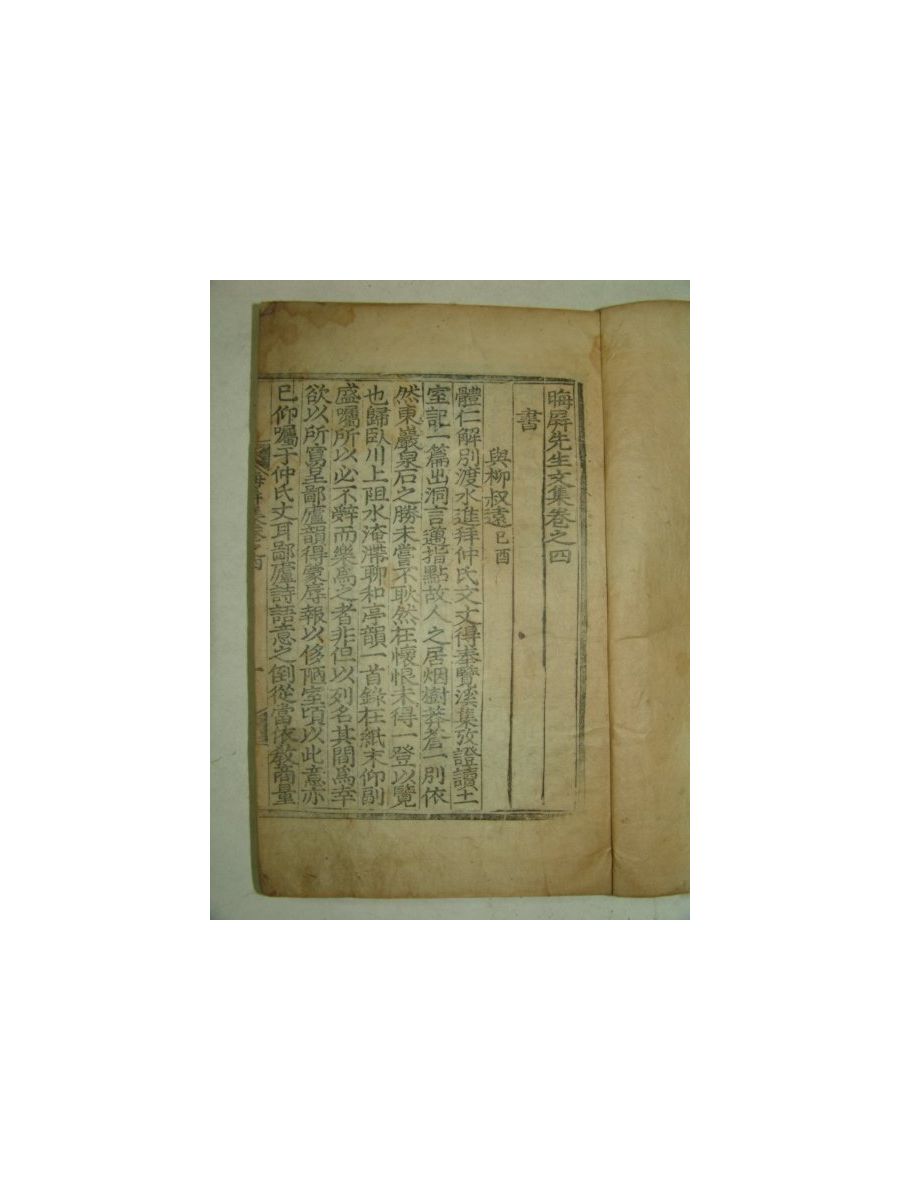 晦屛先生文集卷之四
書
與柳叔遠 己酉
體仁解別渡水進拜仲氏文丈得奉覽溪集攷證讀土
室記一篇出洞言邁指點故人之居烟樹莽蒼一別依
然東巖泉石之勝未嘗不耿然在懷恨未得一登以覽
也歸臥川上阻水淹滯聊和亭韻一首錄在紙末仰副
盛囑所以必不辭而樂爲之者非但以列名其間爲幸
欲以所寫呈鄙廬韻得蒙辱報以侈陋室頃以此意亦
已仰囑于仲氏丈耳鄙廬詩語意之倒從當依敎商量